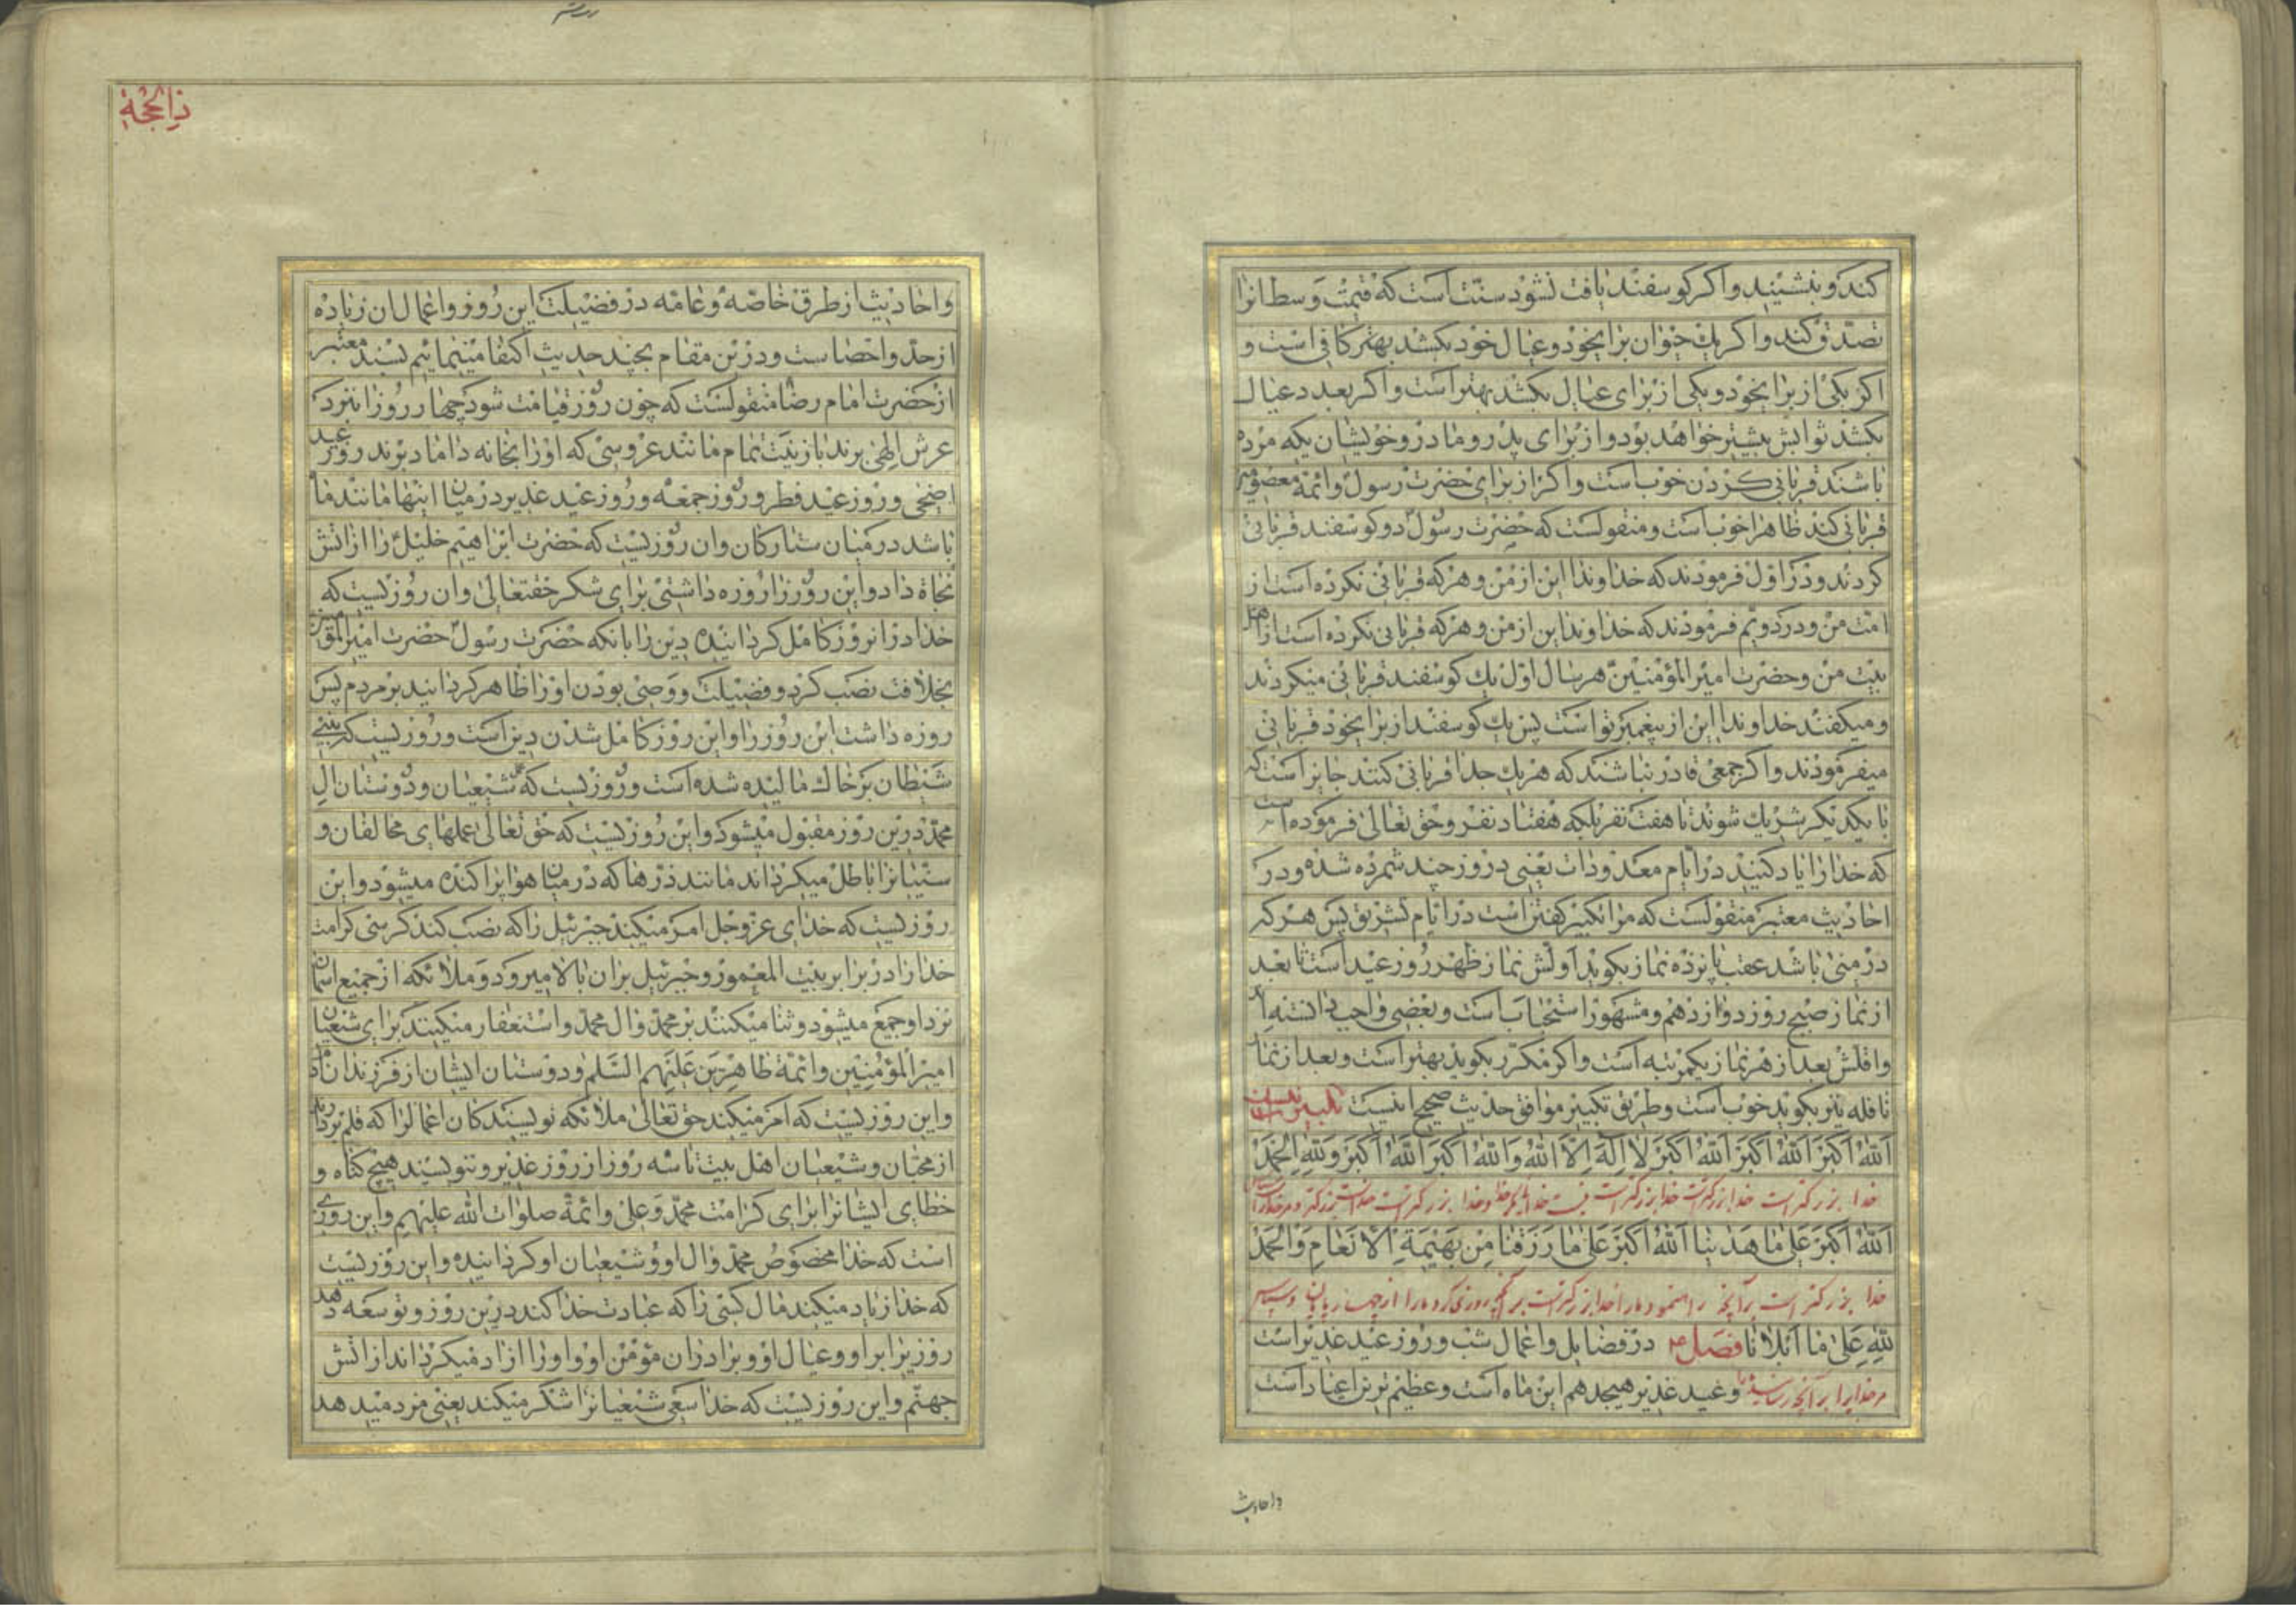 کند و بنشیند و اکر کوسفند یافت نشود سنت است که قیمت وسط انرا
تصدق کند و اکر یک حیوان برای خود و عیال خود بکشد بهتر کافی است و
اکر یکی از برای خود و یکی از برای عیال بکشد بهتر است و اکر بعدد عیال
بکشد ثوابش بیشتر خواهد بود و از برای پدر و مادر و خویشان یکه مرده
باشند قربانی کردن خوب است و اکر از برای حضرت رسول و ائمه معصومین
قربانی کند ظاهرا خوب است و منقولست که حضرت رسول دو کوسفند قربانی
کردند و در اول فرمودند که خداوندا این از من و هر که قربانی نکرده است از
امت من و در دویم فرمودند که خداوندا این از من و هر که قربانی نکرده است از اهل
بیت من و حضرت امیر المؤمنین هر سال اول یک کوسفند قربانی میکردند
و میکفتند خداوندا این از پیغمبر تو است پس یک کوسفند از برای خود قربانی
میفرمودند و اکر جمعی قادر نباشند که هر یک جدا قربانی کنند جایز است که
با یکدیکر شریک شوند تا هفت نفر بلکه هفتاد نفر و حق تعالی فرموده است
که خدا را یاد کنید در ایام معدودات یعنی در روز چند شمرده شده و در
احادیث معتبر منقولست که مراد تکبیر کفتن است در ایام تشریق پس هر که
در منی باشد عقب پانزده نماز بکوید اولش نماز ظهر روز عید است تا بعد
از نماز صبح روز دوازدهم و مشهور استحباب است و بعضی واجب دانسته اند
و اقلش بعد از هر نماز یکمرتبه است و اکر مکرر بکوید بهتر است و بعد از نماز
نافله نیز بکوید خوب است و طریق تکبیر موافق حدیث صحیح اینست تکبیر
اَللهُ اَکبَرُ اَللهُ اَکبَرُ اَللهُ اَکبَرُ لا اِلهَ اِلَّا اللهُ وَاللهُ اَکبَرُ اَللهُ اَکبَرُ وَلِلّهِ الحَمدُ
خدا بزرکتر است خدا بزرکتر است خدا بزرکتر است نیست خدا مکر خدا و خدا بزرکتر است خدا بزرکتر و مر خدا را
اَللهُ اَکبَرُ عَلی ما هَدانا اَللهُ اَکبَرُ عَلی ما رَزَقَنا مِن بَهیمَةِ الاَنعامِ وَالحَمدُ
خدا بزرکتر است بر آنچه راه نمود مارا خدا بزرکتر است بر آنچه روزی کرد مارا از چهارپایان و سپاس
لِلّهِ عَلی ما اَبلانا فصل در فضایل و اعمال شب و روز عید غدیر است
مر خدایرا بر آنچه و عید غدیر هیجدهم این ماه است و عظیم ترین اعیاد است
و احادیث
ذا الحجة
و احادیث از طرق خاصه و عامه در فضیلت این روز و اعمال ان زیاده
از حد و احصاست و در این مقام بچند حدیث اکتفا مینمائیم بسند معتبر
از حضرت امام رضا منقولست که چون روز قیامت شود چهار روز را بنزد
عرش الهی برند با زینت تمام مانند عروسی که او را بخانه داماد برند روز عید
اضحی و روز عید فطر و روز جمعه و روز عید غدیر در میان اینها مانند ماه
باشد در میان ستارکان و ان روزیست که حضرت ابراهیم خلیل را از اتش
نجاة داد و این روز را روزه داشتی برای شکر حقتعالی و ان روزیست که
خدا در انروز کامل کردانیده دین را بانکه حضرت رسول حضرت امیرالمؤمنین
بخلافت نصب کرد و فضیلت و وصی بودن او را ظاهر کردانید بر مردم پس
روزه داشت این روز را و این روز کامل شدن دین است و روزیست که بینی
شیطان بر خاک مالیده شده است و روزیست که عمل شیعیان و دوستان ال
محمد در این روز مقبول میشود و این روزیست که حق تعالی عملهای مخالفان و
سنیانرا باطل میکرداند مانند ذرها که در میان هوا پراکنده میشود و این
روزیست که خدای عز و جل امر میکند جبرئیل را که نصب کند کرسی کرامت
خدا را در برابر بیت المعمور و جبرئیل بر ان بالا میرود و ملائکه از جمیع اسمان
نزد او جمع میشود و ثنا میکنند بر محمد و ال محمد و استغفار میکنند برای شیعیان
امیر المؤمنین و ائمة طاهرین علیهم السلم و دوستان ایشان از فرزندان ادم
و این روزیست که امر میکند حق تعالی ملائکه نویسندکان اعمالرا که قلم بردارند
از محبان و شیعیان اهل بیت تا سه روز از روز غدیر و ننویسند هیچ کناه و
خطای ایشانرا برای کرامت محمد و علی و ائمة صلوات الله علیهم و این روزی
است که خدا مخصوص محمد و ال او و شیعیان او کردانیده و این روزیست
که خدا زیاد میکند مال کسی را که عبادت خدا کند در این روز و توسعه دهد
روز بر او و عیال او و برادران مؤمن او و او را ازاد میکرداند از اتش
جهنم و این روزیست که خدا سعی شیعیانرا شکر میکند یعنی مزد میدهد